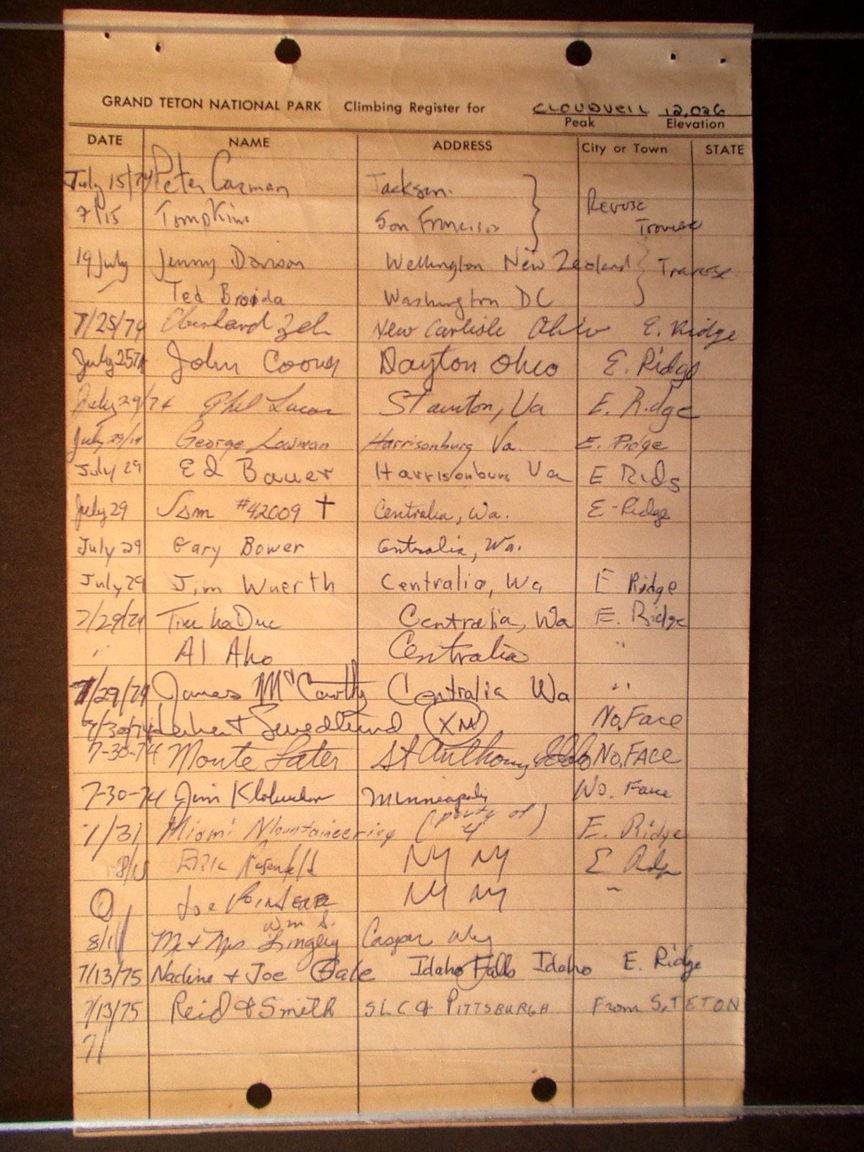 GRAND TETON NATIONAL PARK Climbing Register for CLOUDVEIL 12,026
Peak Elevation
DATE NAME ADDRESS City or Town STATE
July 15/74 Peter Carman Jackson.
7/15 Tompkins San Francisco Reverse Traverse
19 July Jenny Davison Wellington New Zealand Traverse
Ted Broida Washington DC
7/25/74 Eberhard New Carlisle Ohio E. Ridge
July 25 74 John Dayton Ohio E. Ridge
July 29/74 Phil Lucas Staunton, Va E. Ridge
July 29/74 George Harrisonburg Va. E. Ridge
July 29 Ed Bauer Harrisonburg Va E Ridg
July 29 #42009 † Centralia, Wa. E-Ridge
July 29 Gary Bower Centralia, Wa.
July 29 Jim Wuerth Centralia, Wa E Ridge
7/29/74 Tim LaDuc Centralia, Wa E. Ridge
" Al Aho Centralia "
7/29/74 James McCarthy Centralia Wa "
7/30/74 Swedlund (XM) No. Face
7-30-74 Monte Later St Anthony Idaho No. FACE
7-30-74 Jim Klobuchar Minneapolis No. Face
7/31 Miami Mountaineering (party of 4) E. Ridge
8/ Eric Rosenfeld NY NY E Rdg
Joe NY NY "
8/1 Mr & Mrs Wm S. Lingley Casper Wy
7/13/75 Nadine & Joe Gale Idaho Falls Idaho E. Ridge
7/13/75 Reid & Smith SLC & PITTSBURGH From S. TETON
7/